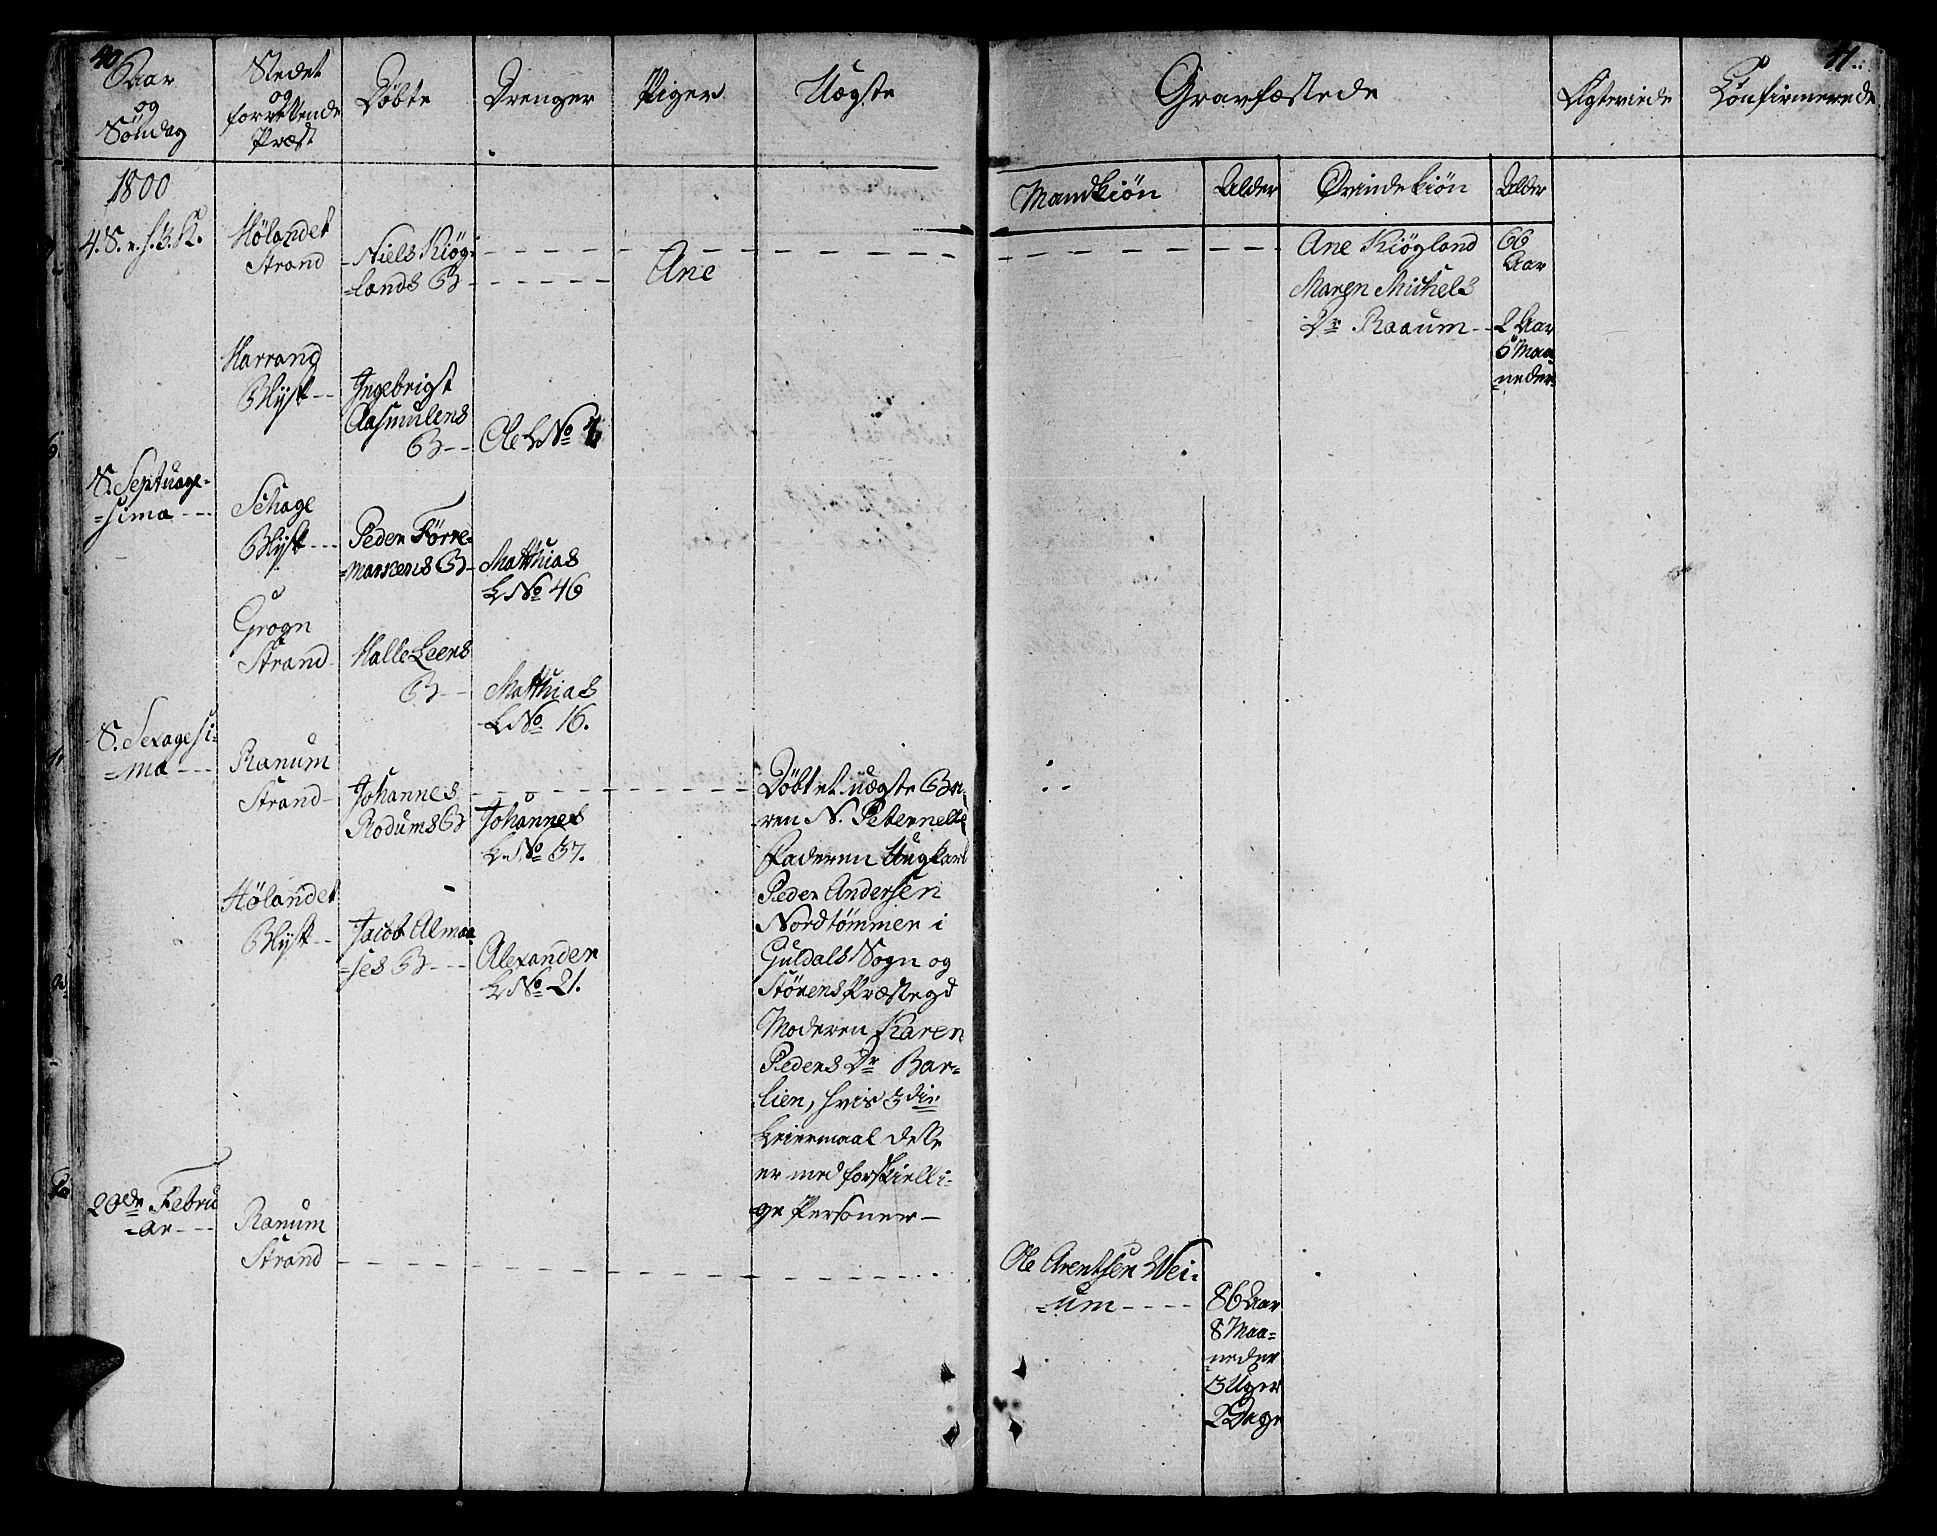 40
Aar
og
Søndag
Stedet
og
forrettende
Præst
Døbte
Drenger
Piger
Uægte
Gravfæstede
Ægteviede
Confirmerede
41
Mandkiøn
Alder
Qvindekiøn
Alder
1800
4. S. e. h. 3. K.
Hølandet
Strand
Niels Kiøg=
=lands B
Ane
Ane Kiøgland
66
Aar
Maren Michels
Dr Raaum
2 Aar
5 Maa
=neder
Harrang
Blÿst
Ingebrigt
Aasmulens
B
Ole LNo
S. Septuage=
=sima
Schage
Blÿst
Peder Førre=
=markens B
Matthias
LNo 46
Grogn
Strand
Halle Leens
B
Matthias
LNo 16.
S. Sexagesi=
=ma
Ranum
Strand
Johannes
Rodums B
Johannes
LNo 37.
Døbt et uægte Ba
ren N. Peternelle
Faderen Ungkarl
Peder Andersen
Nordtømmer i
Guldals Sogn og
Størens Præstegd
Moderen Karen
Peders Dr Bar=
lien, hvis 3die
Leiermaal dette
er med forskielli=
ge Personer
Hølandet
Blÿst
Jacob Almaa
=ses B
Alexander
LNo 21.
20de Febru
=ar
Ranum
Strand
Ole Arentsen Wei=
=um
86 Aar
8 Maa=
neder
3 Uger
2 Dage